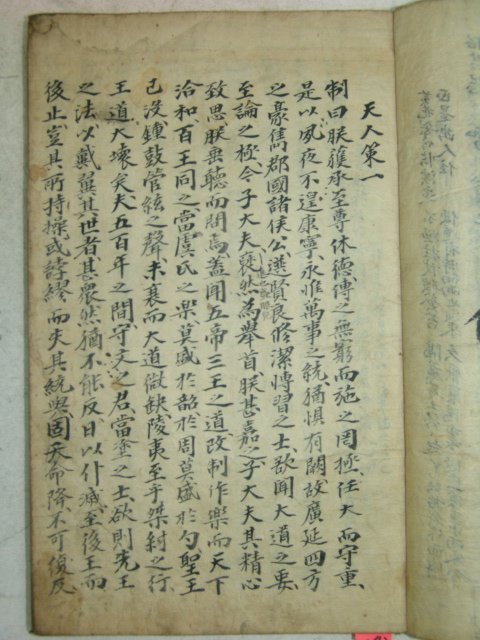 天人策一
制曰朕獲承至尊休德傳之無窮而施之罔極任大而守重
是以夙夜不遑康寧永惟萬事之統猶惧有闕故廣延四方
之豪雋郡國諸侯公選賢良修潔博習之士欲聞大道之要
至論之極今子大夫褎然爲舉首朕甚嘉之子大夫其精心
致思朕垂聽而問焉盖聞五帝三王之道改制作樂而天下
洽和百王同之當虞氏之樂莫盛於韶於周莫盛於勺聖王
已沒鍾鼓管絃之聲未衰而大道微缺陵夷至乎桀紂之行
王道大壞矣夫五百年之間守文之君當塗之士欲則先王
之法以戴翼其世者甚衆然猶不能反日以仆滅至後王而
後止豈其所持操或誖繆而失其統與固天命降不可復反